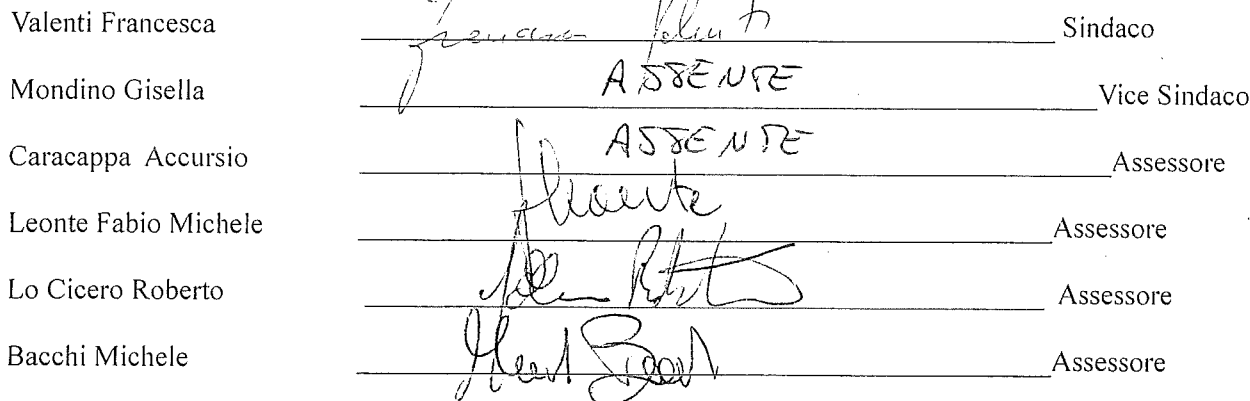 Valenti Francesca Sindaco
Mondino Gisella ASSENTE Vice Sindaco
Caracappa Accursio ASSENTE Assessore
Leonte Fabio Michele Assessore
Lo Cicero Roberto Assessore
Bacchi Michele Assessore